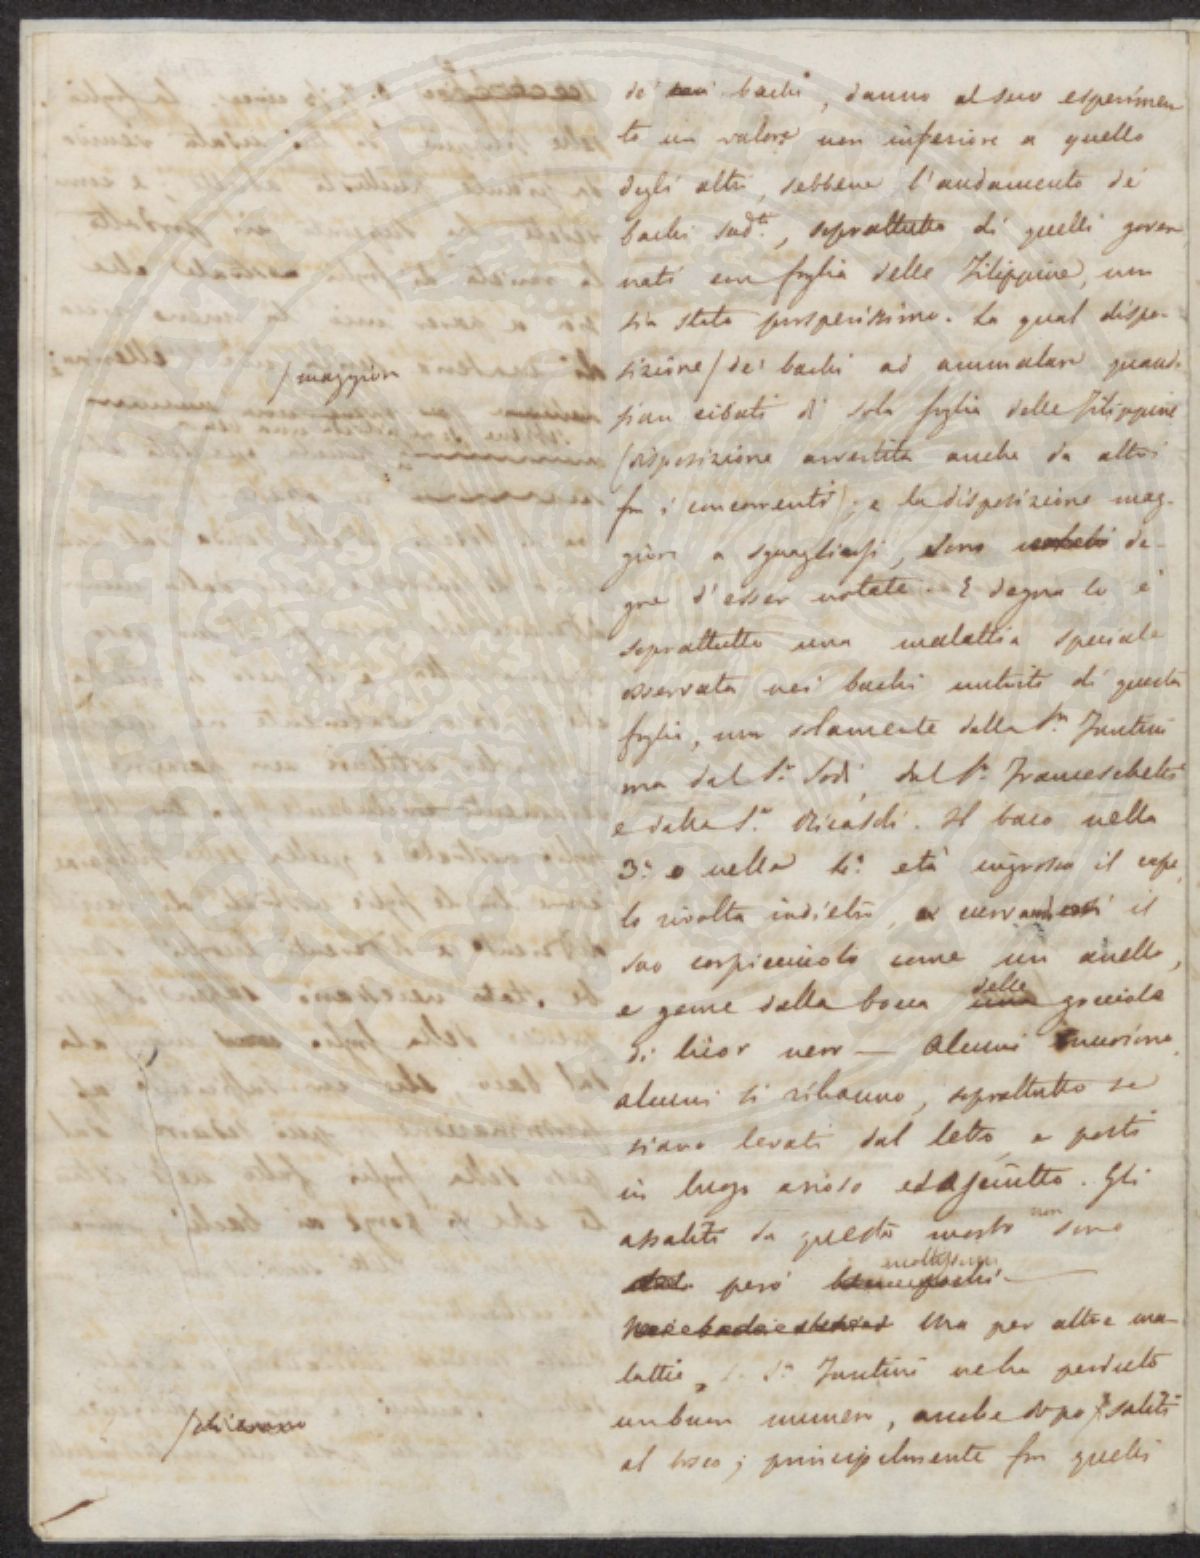 de' suoi bachi, danno al suo esperimen
to un valore non inferiore a quello
degli altri, sebbene l'andamento de'
bachi sud.ti, soprattutto di quelli gover
nati con foglia delle Filippine, non
sia stato prosperissimo. La qual dispo-
sizione / de' bachi ad ammalare quando
/ maggiore
sian cibati di sola foglia delle Filippine
(disposizione avvertita anche da altri
fra i concorrenti); e la disposizione mag-
giore a sguagliarsi, sono de-
gne d'esser notate. E degna lo è
soprattutto una malattia speciale
osservata nei bachi nutriti di questa
foglia, non solamente dalla S.ra Fantini
ma dal S.r Sodi, dal S.r Franceschetti
e dalla S.ra Ricasoli. Il baco nella
3.a o nella 4.a età ingrossa il capo,
lo rivolta indietro, il
suo corpicciuolo come un anello,
e geme dalla bocca una delle gocciole
di licor nero — Alcuni muoiono,
alcuni si rihanno, soprattutto se
siano levati dal letto, e posti
in luogo arioso ed asciutto. Gli
assaliti da questo morbo non sono
però moltissimi
Ma per altre ma-
lattie, la S.ra Fantini ne ha perduto
un buon numero, anche dopo / saliti
al bosco; principalmente fra quelli